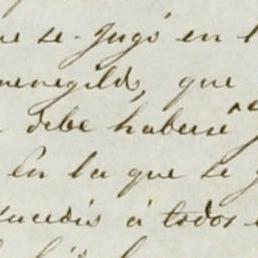 se jugó en l
menegildo, que
debe haberse
En la que se
sucedió á todos